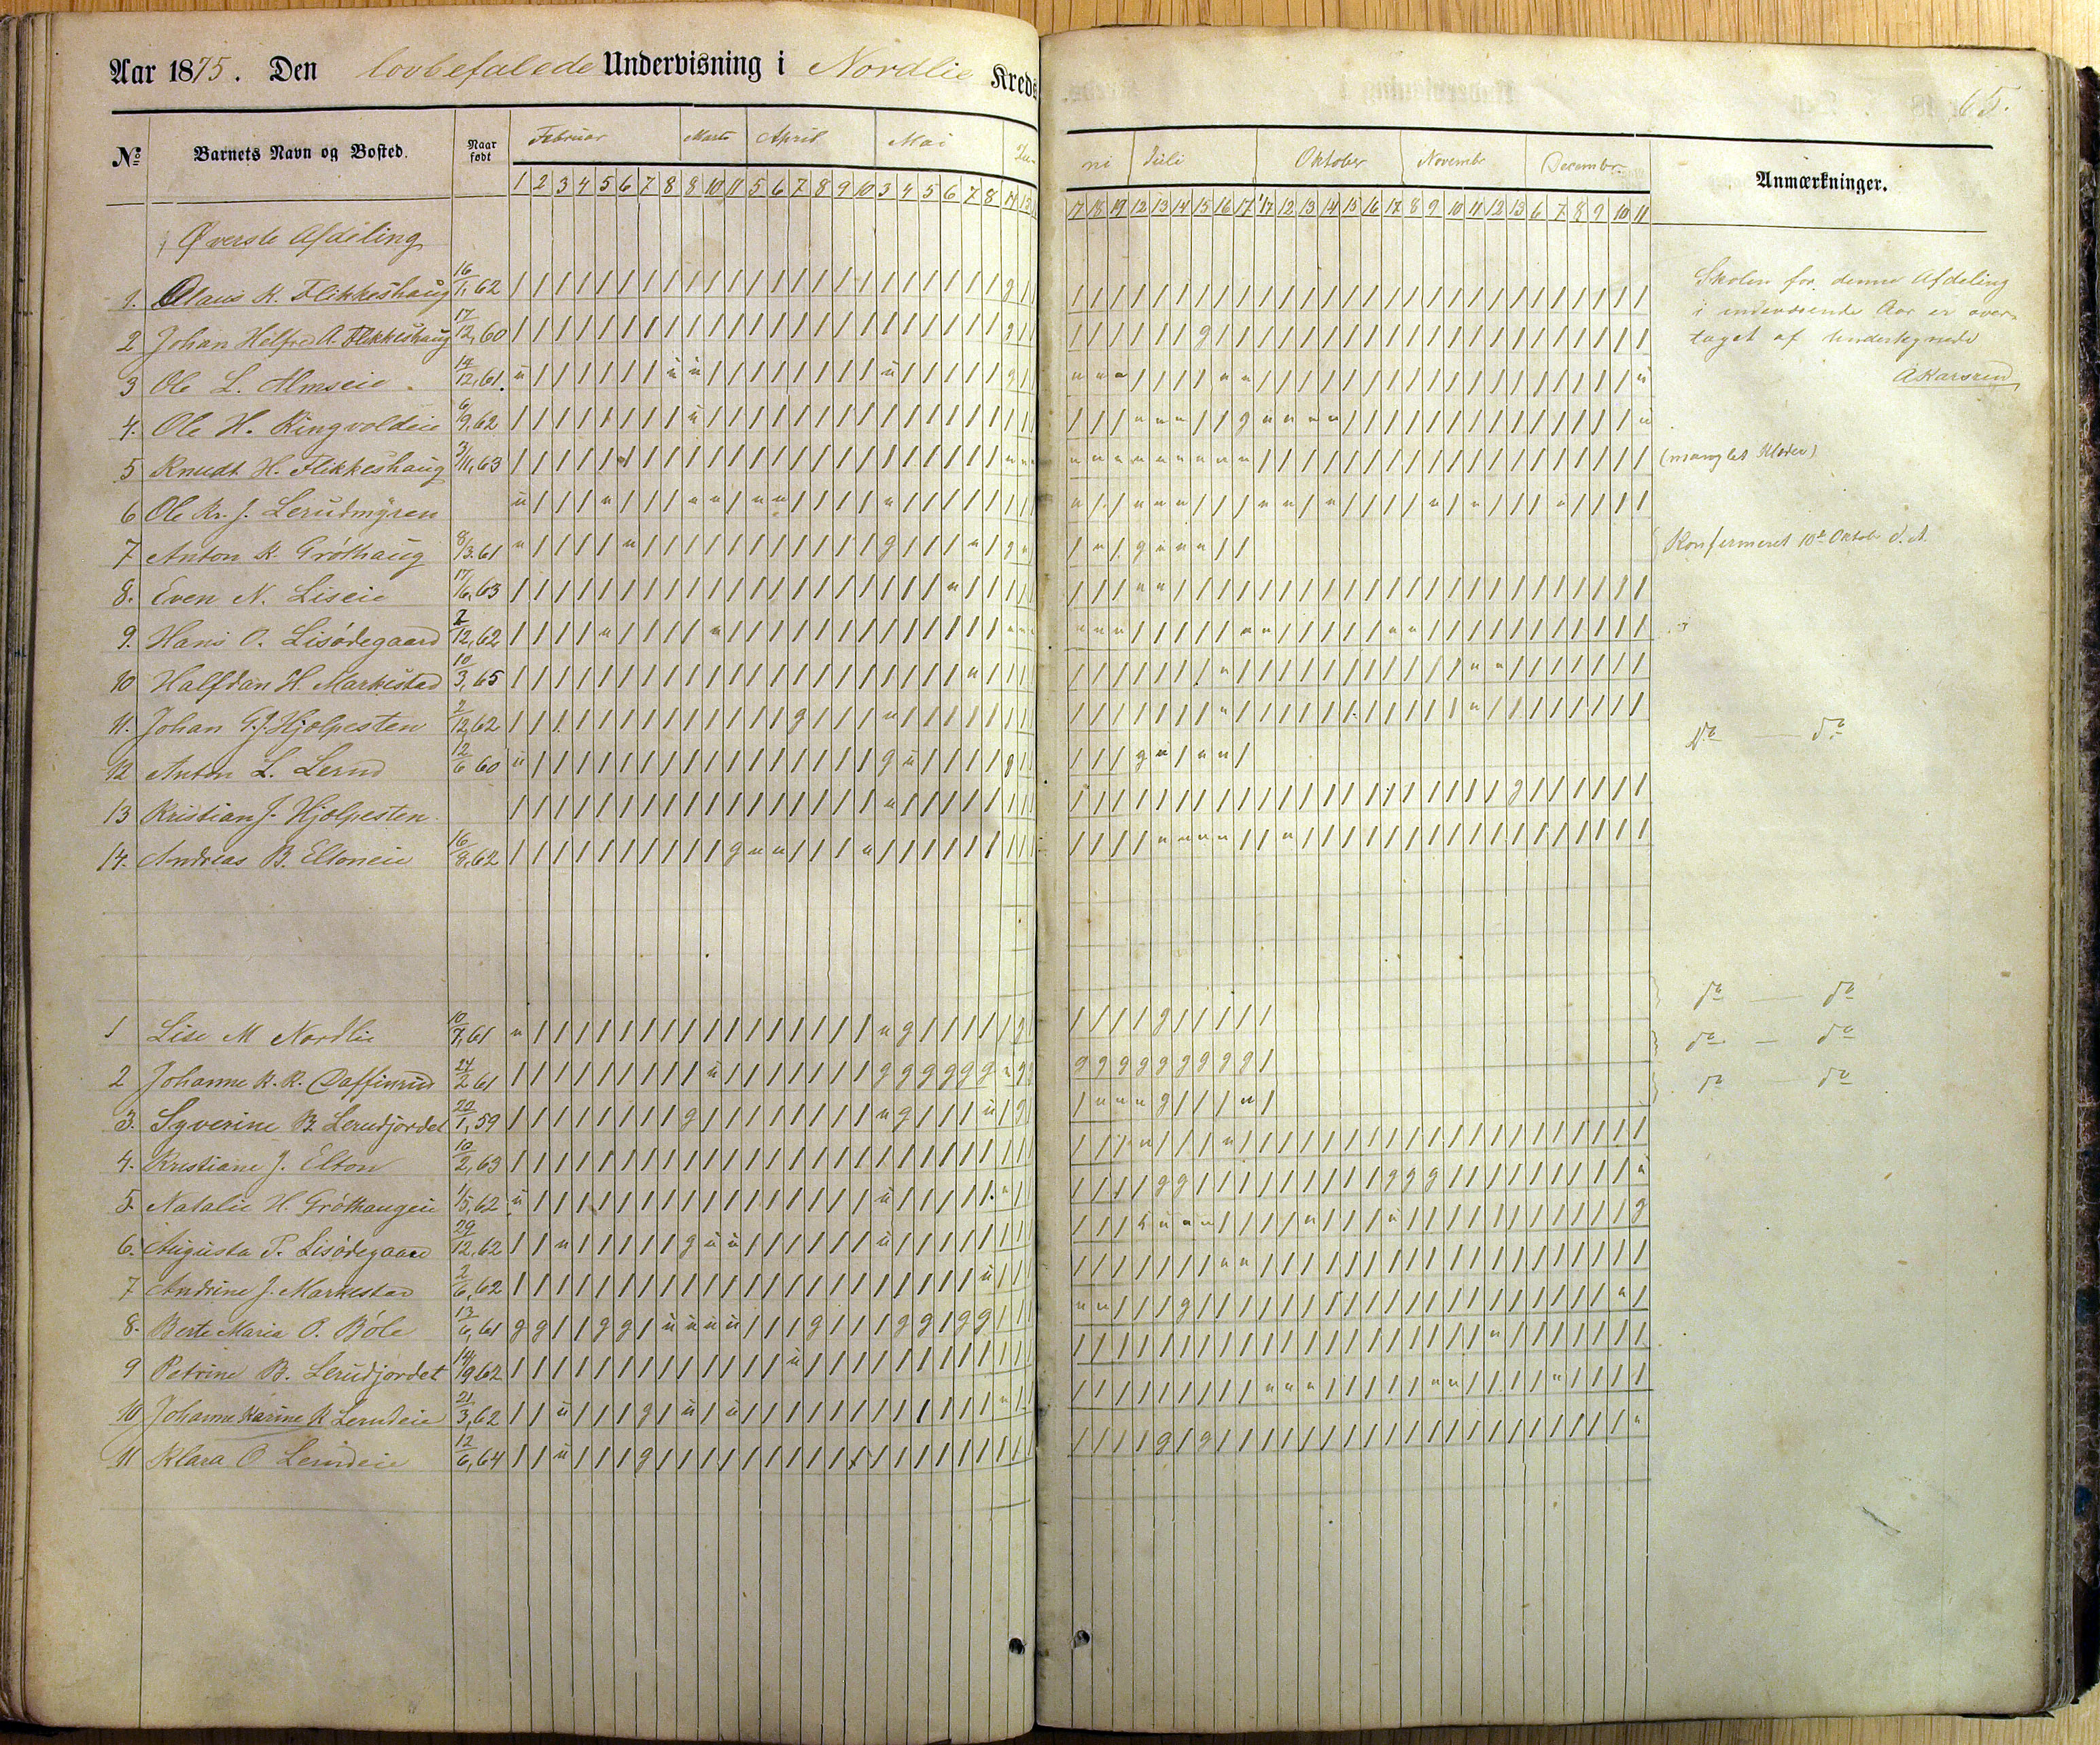 Aar 1875. Den lovbefalede Undervisning i Nordlie Kreds
65.
No Barnets Navn og Bosted. Naar født Februar Marts April Mai Juni Juli Oktober Novembr Decembr Anmærkninger.
1 2 3 4 5 6 7 8 8 10 11 5 6 7 8 9 10 3 4 5 6 7 8 17 18 19 12 13 14 15 16 17 12 13 14 15 16 17 8 9 10 11 12 13 6 7 8 9 10 11
Øverste Afdeling
1. Olaus K. Flikkeshaug 16/1, 62
2 Johan Helfred A. Flikkeshaug 17/12, 60
3 Ole L. Almseie 14/12, 61.
4. Ole H. Ringvoldeie 6/9, 62
5 Knudt H. Flikkeshaug 3/11, 63
6 Ole Kr. J. Lerudmyren
7 Anton K. Gróthaug 8/3. 61
8. Even N. Liseie 17/6, 63
9. Hans O. Lisódegaard 2/12, 62
10 Halfdan H. Markestad 10/3, 65
11. Johan G. J. Hjelpesten 2/12, 62
12 Anton L. Lerud 12/6 60
13 Kristian J. Hjelpesten
14. Andreas B. Eltoneie 16/8, 62
Skolen for denne Afdeling
i indeværende Aar er over-
taget af Undertegnede
AKarsrud
(manglet Klæder)
Konfirmeret 10de Oktober d. A.
do — do
1 Lise M Nordlie 10/7, 61 do — do
2 Johanne K. R. Daffinrud 24/2 61 do — do
3. Syverine B. Lerudjordet 22/1, 59 do — do
4. Kristiane J. Elton 10/2, 63
5. Natalie H. Gróthaugeie 1/5, 62
6. Augusta P. Lisódegaard 29/12, 62
7 Andrine J. Markestad 2/6, 62
8. Berte Maria O. Bóle 13/6, 61
9 Petrine B. Lerudjordet 14/9 62
10 Johanne Karine K Lerudeie 21/3, 62
11 Klara O Lerudeie 12/6, 64